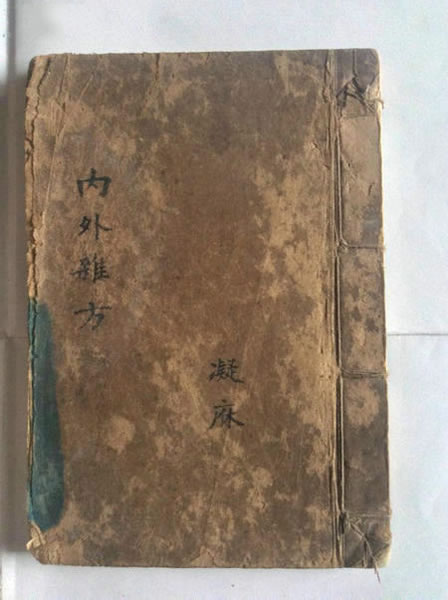 内外雜方
凝麻